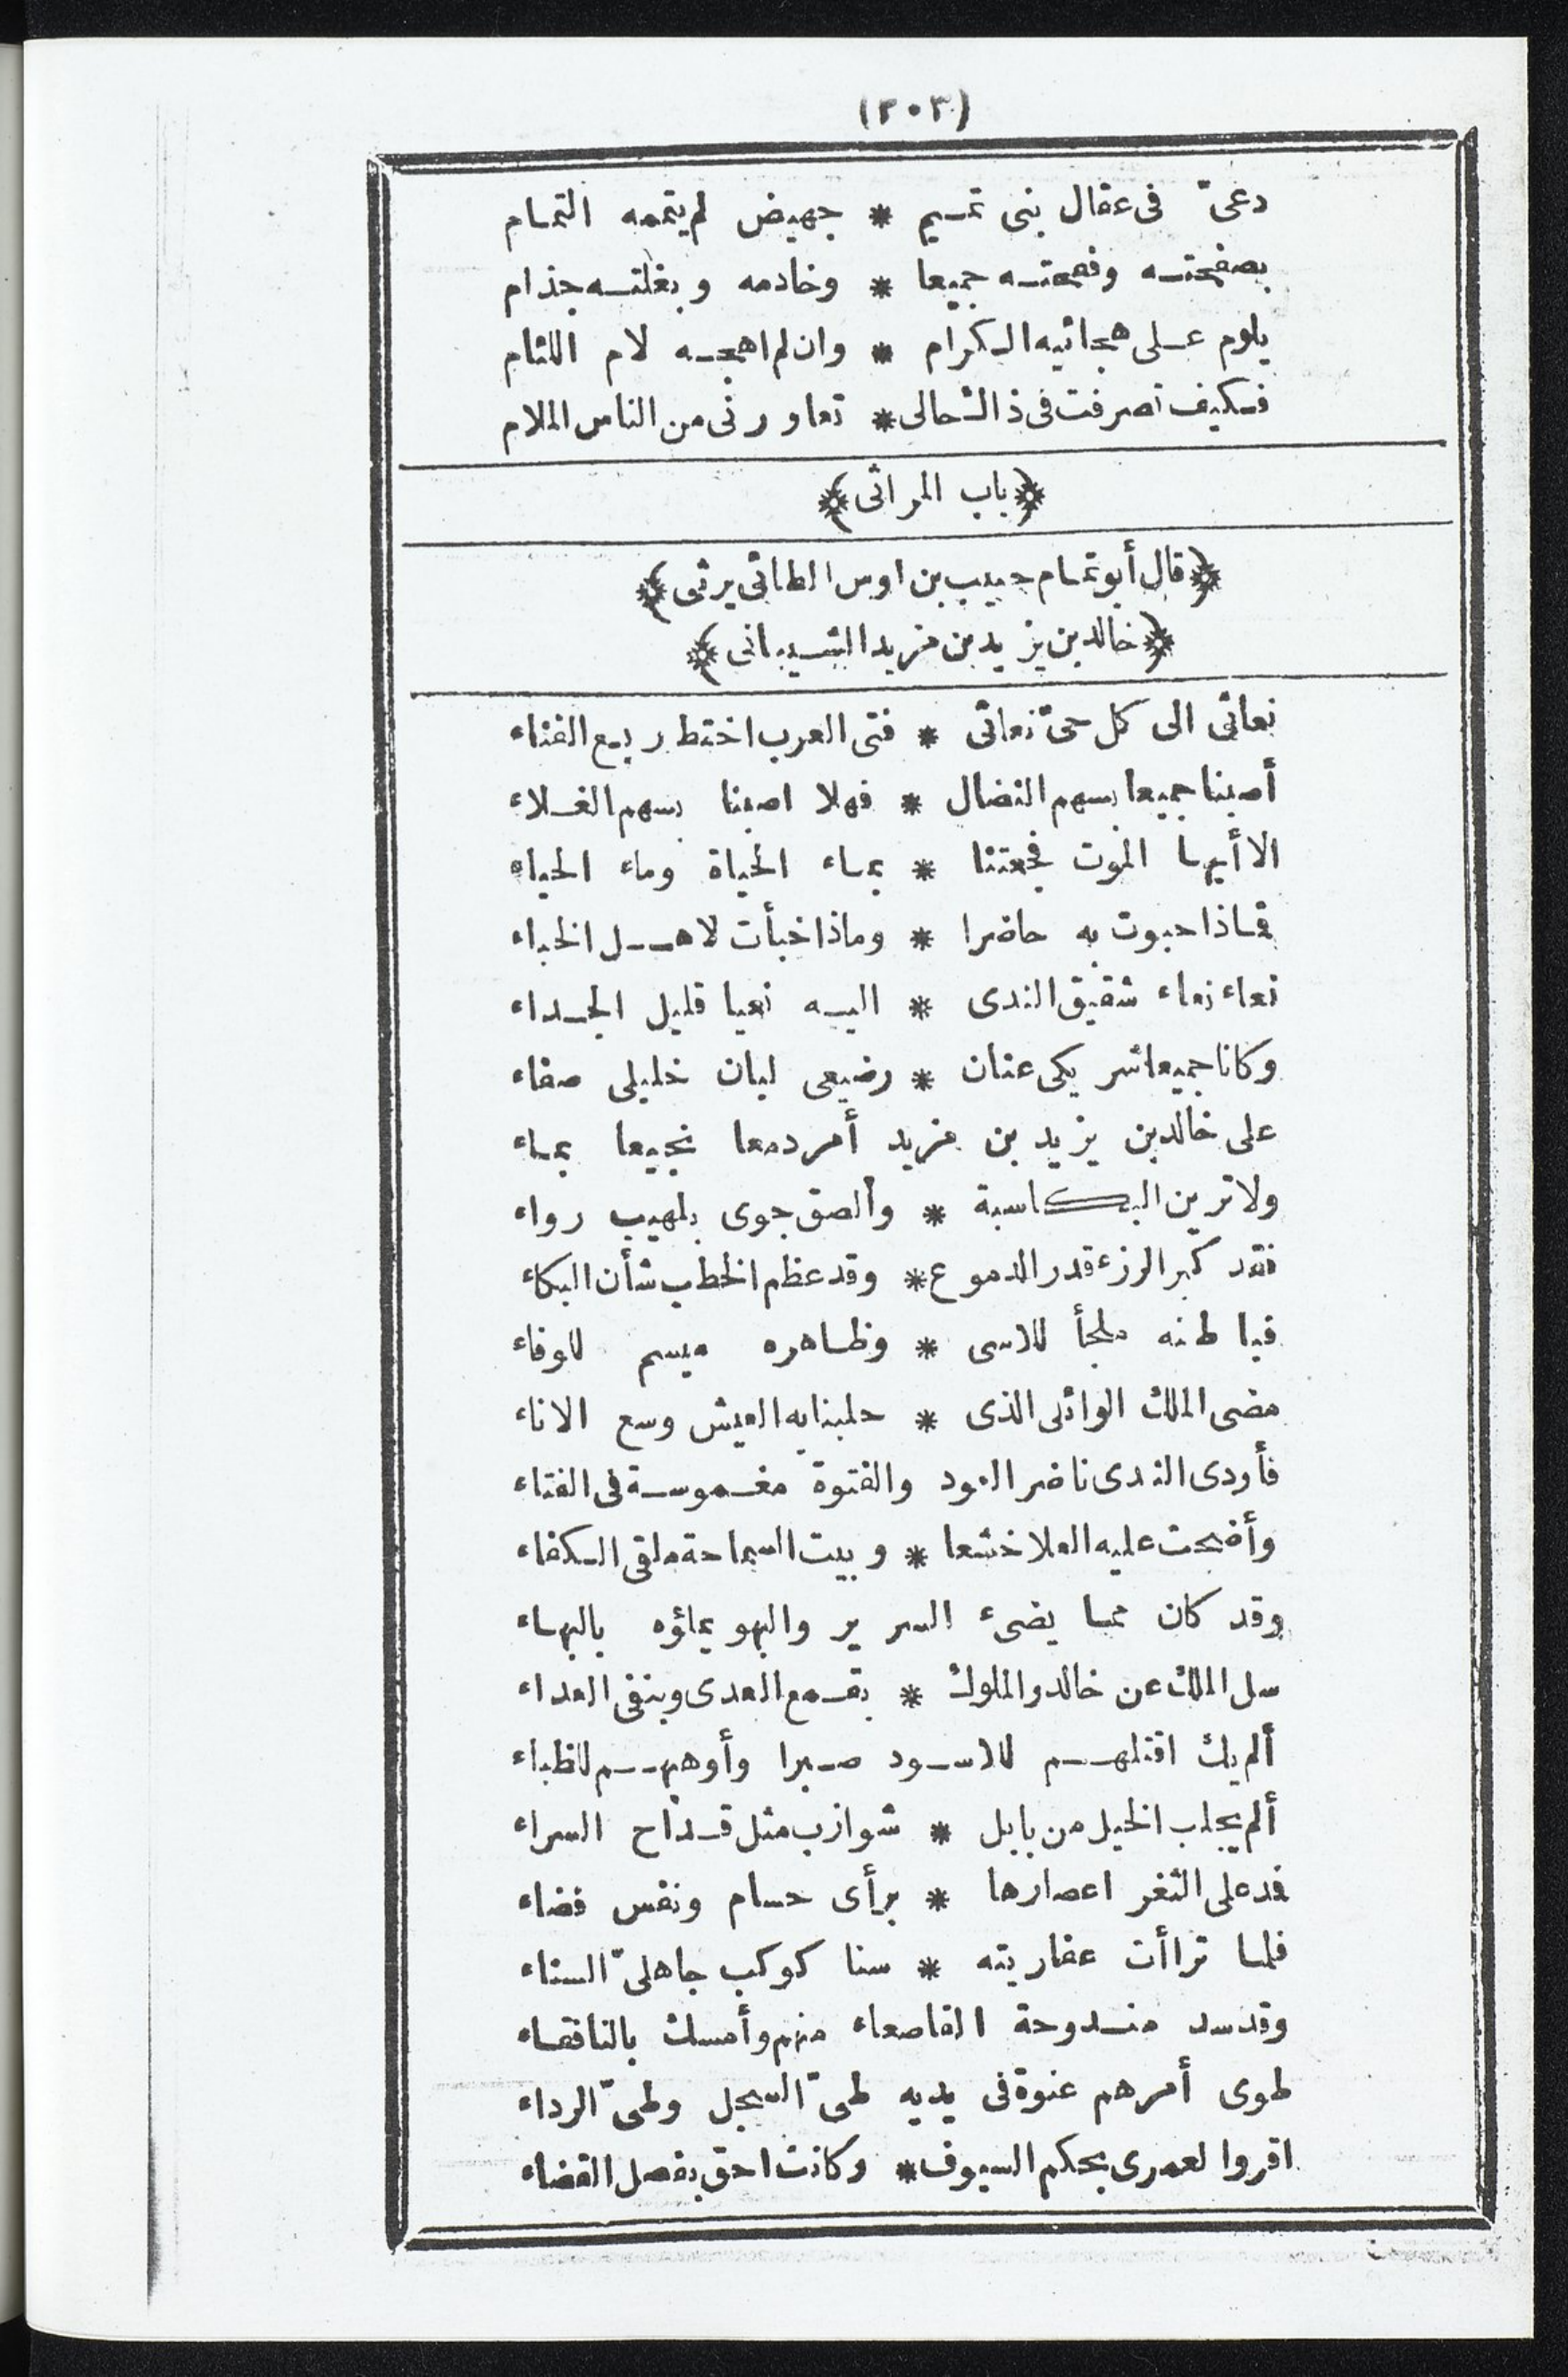 (٢٠٣)
دعىّ فى عقال بنى تمسيم * جهيض لم يتممه التمام
بصفحته وفحمته جميعا * وخادمه وبغلته جذام
يلوم على هجائيه الكرام * وان لم اهجه لام اللئام
فكيف تصرفت فى ذالـُحالى * تعاورنى من الناس الملام
﴿باب المراثى﴾
﴿قال أبو تمام حبيب بن اوس الطائى يرثى﴾
﴿خالد بن يزيد بن مزيد الشيبانى﴾
نعائى الى كل حىّ نعائى * فتى العرب اختط ربع الفناء
أصبنا جميعا بسهم النضال * فهلا اصبنا بسهم الغلاء
الا أيها الموت فجعتنا * بماء الحياة وماء الحياه
فماذا حبوت به حاضرا * وماذا خبأت لاهل الخباء
نعاء نعاء شقيق الندى * اليه نعيا قليل الجداء
وكانا جميعا شريكى عنان * رضيعى لبان خليلى صفاء
على خالد بن يزيد بن مزيد أمر دمعا نجيعا بماء
ولا ترين البكا سبة * وألصق جوى بلهيب رواء
فقد كبر الرزء قدر الدموع * وقد عظم الخطب شأن البكاء
فباطنه ملجأ للاسى * وظاهره ميسم للوفاء
مضى الملك الوائلى الذى * حلبنا به العيش وسع الاناء
فأودى الندى ناضر العود والفتوة مغموسة فى الفتاء
وأضحت عليه العلا خشعا * وبيت السماحة ملقى الكفاء
وقد كان مما يضىء السرير والبهو يملؤه بالبهاء
سل الملك عن خالد والملوك * بقمع العدى وبنفى العداء
ألم يك اقتلهم للاسود صبرا وأوهبهم للظباء
ألم يجلب الخيل من بابل * شوازب مثل قداح السراء
فمد على الثغر اعصارها * برأى حسام ونفس فضاء
فلما تراأت عفاريته * سنا كوكب جاهلىّ السناء
وقد سد مندوحة القاصعاء منهم وأمسك بالنافقاء
طوى أمرهم عنوة فى يديه طىّ السجل وطىّ الرداء
اقروا لعمرى بحكم السيوف * وكانت احق بفصل القضاء